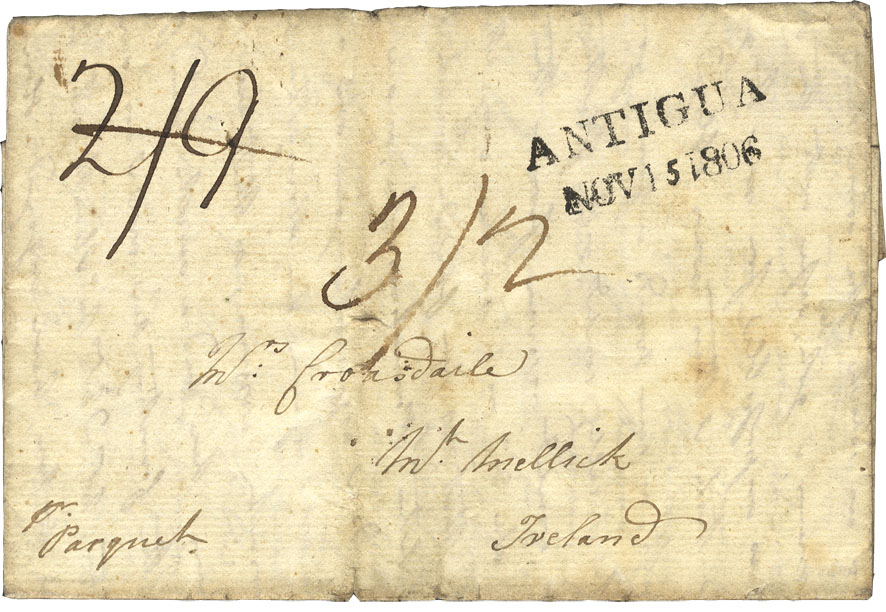 2/9
ANTIGUA
NOV 15 1806
3/2
Mrs. Croasdaile
Mt. Mellick
Ireland
pr. Parquet